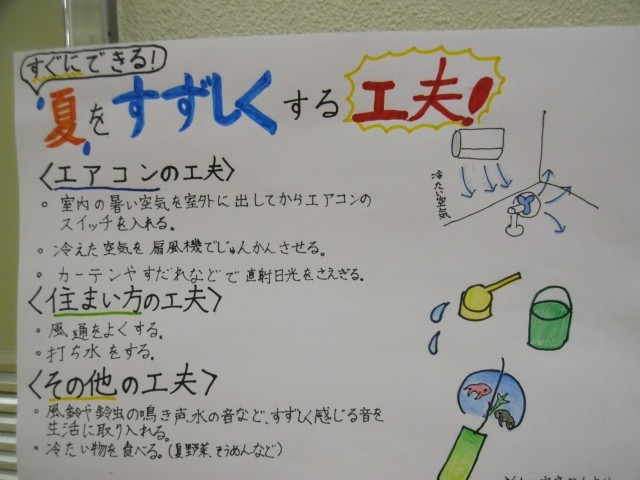 すぐにできる!
夏をすずしくする工夫!
〈エアコンの工夫〉
。室内の暑い空気を室外に出してからエアコンの
スイッチを入れる。
。冷えた空気を扇風機でじゅんかんさせる。
。カーテンやすだれなどで直射日光をさえぎる。
冷たい空気
〈住まい方の工夫〉
。風通をよくする。
。打ち水をする。
〈その他の工夫〉
。風鈴や鈴虫の鳴き声、水の音など、すずしく感じる音を
生活に取り入れる。
。冷たい物を食べる。(夏野菜、そうめんなど)